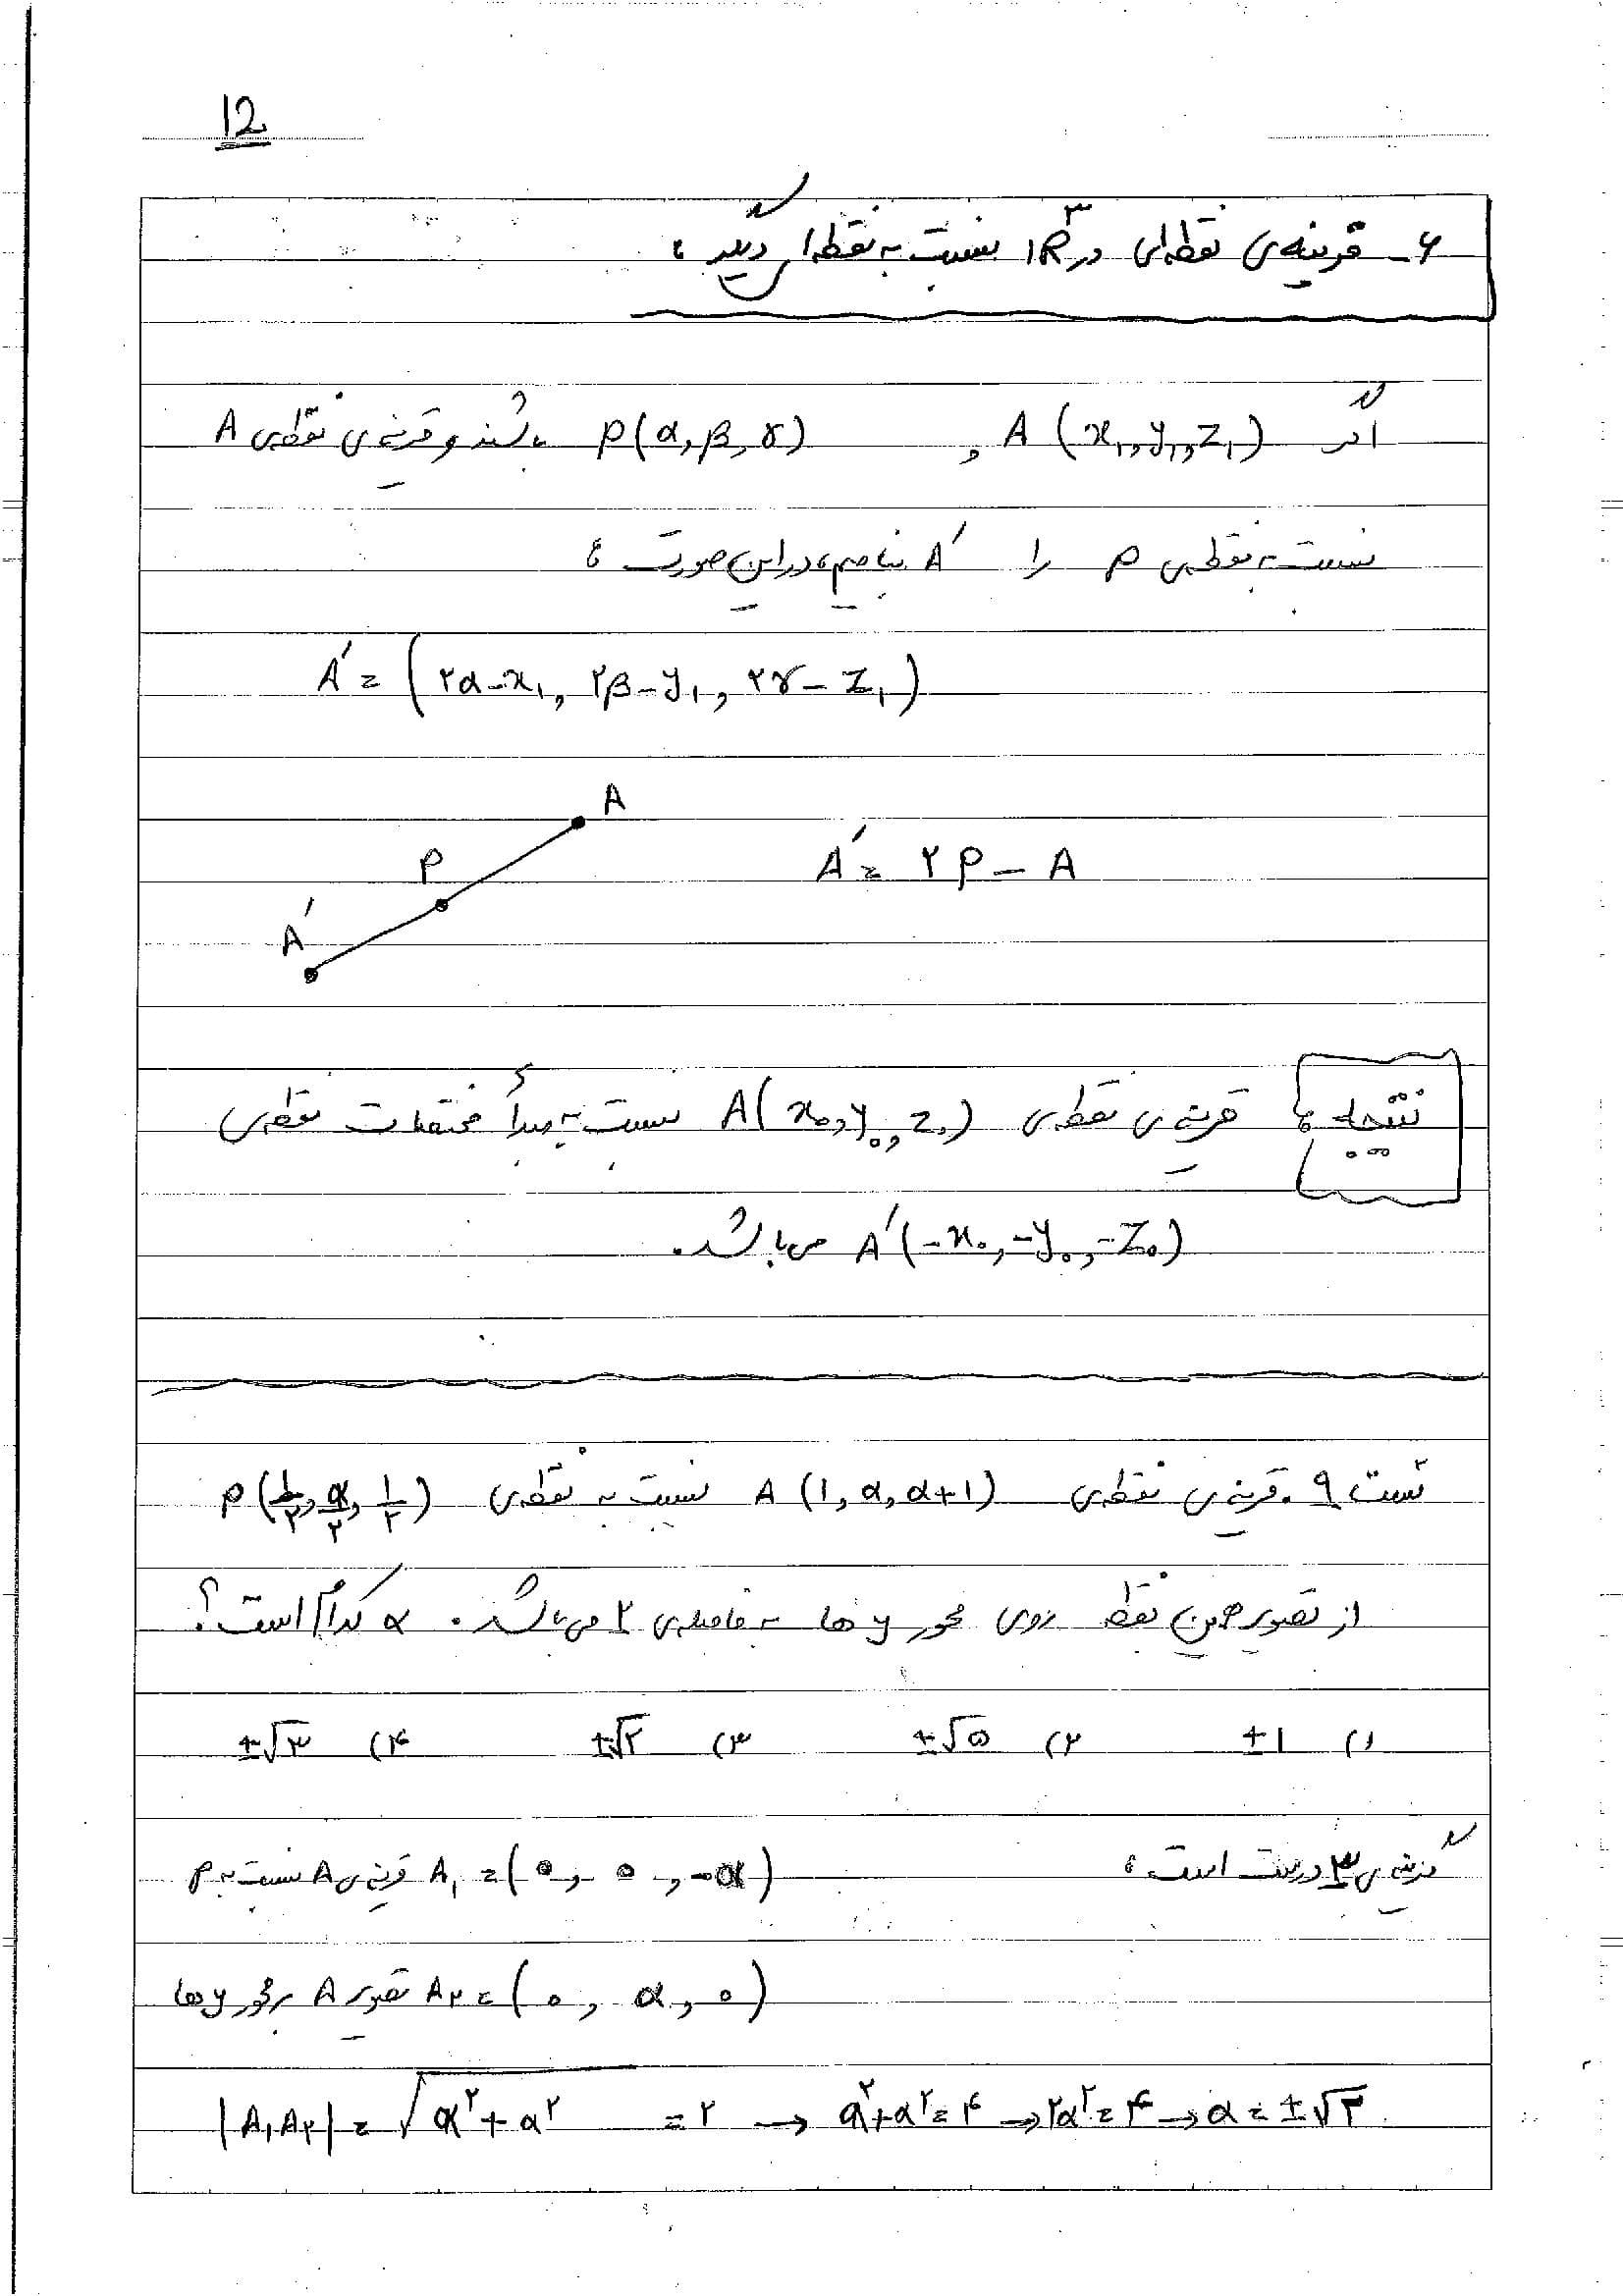 12
۶- قرینه‌ی نقطه‌ای در IR³ نسبت به نقطه‌ای دیگر :
اگر A (x₁, y₁, z₁) , P(α, β, γ) باشند و قرینه‌ی نقطه‌ی A
نسبت به نقطه‌ی P را A′ بنامیم، در این صورت :
A′ = (۲α-x₁, ۲β-y₁, ۲γ-z₁)
A
P
A′
A′ = ۲P - A
نتیجه : قرینه‌ی نقطه‌ی A(x₀, y₀, z₀) نسبت به مبدأ مختصات نقطه‌ی
A′(-x₀, -y₀, -z₀) می‌باشد.
تست ۹. قرینه‌ی نقطه‌ی A (1, α, α+1) نسبت به نقطه‌ی P(۱/۲, α/۲, ۱/۲)
از تصویر همین نقطه روی محور y ها به فاصله‌ی ۲ می‌باشد. α کدام است؟
۱) ±۱ ۲) ±√۵ ۳) ±√۲ ۴) ±√۳
گزینه‌ی ۳ درست است : A₁ = (۰, ۰, -α) قرینه‌ی A نسبت به P
A₂ = (۰, α, ۰) تصویر A بر محور y ها
|A₁A₂| = √α²+α² = ۲ → α²+α²=۴ → ۲α²=۴ → α = ±√۲